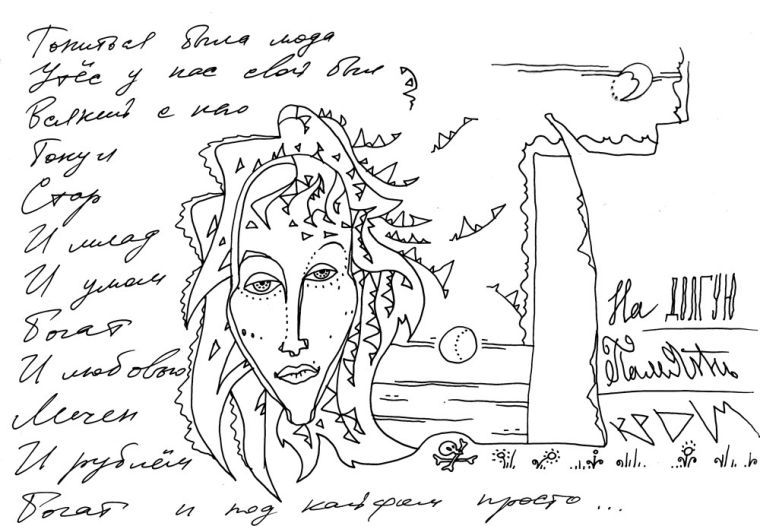 Топиться была мода
Утёс у нас свой был
Всякий с него
Тонул
Стар
И млад
И умом
Богат
И любовью
Мечен
И рублём
Богат и под кайфом просто...
На ДОЛГУЮ
Память
КРДМ